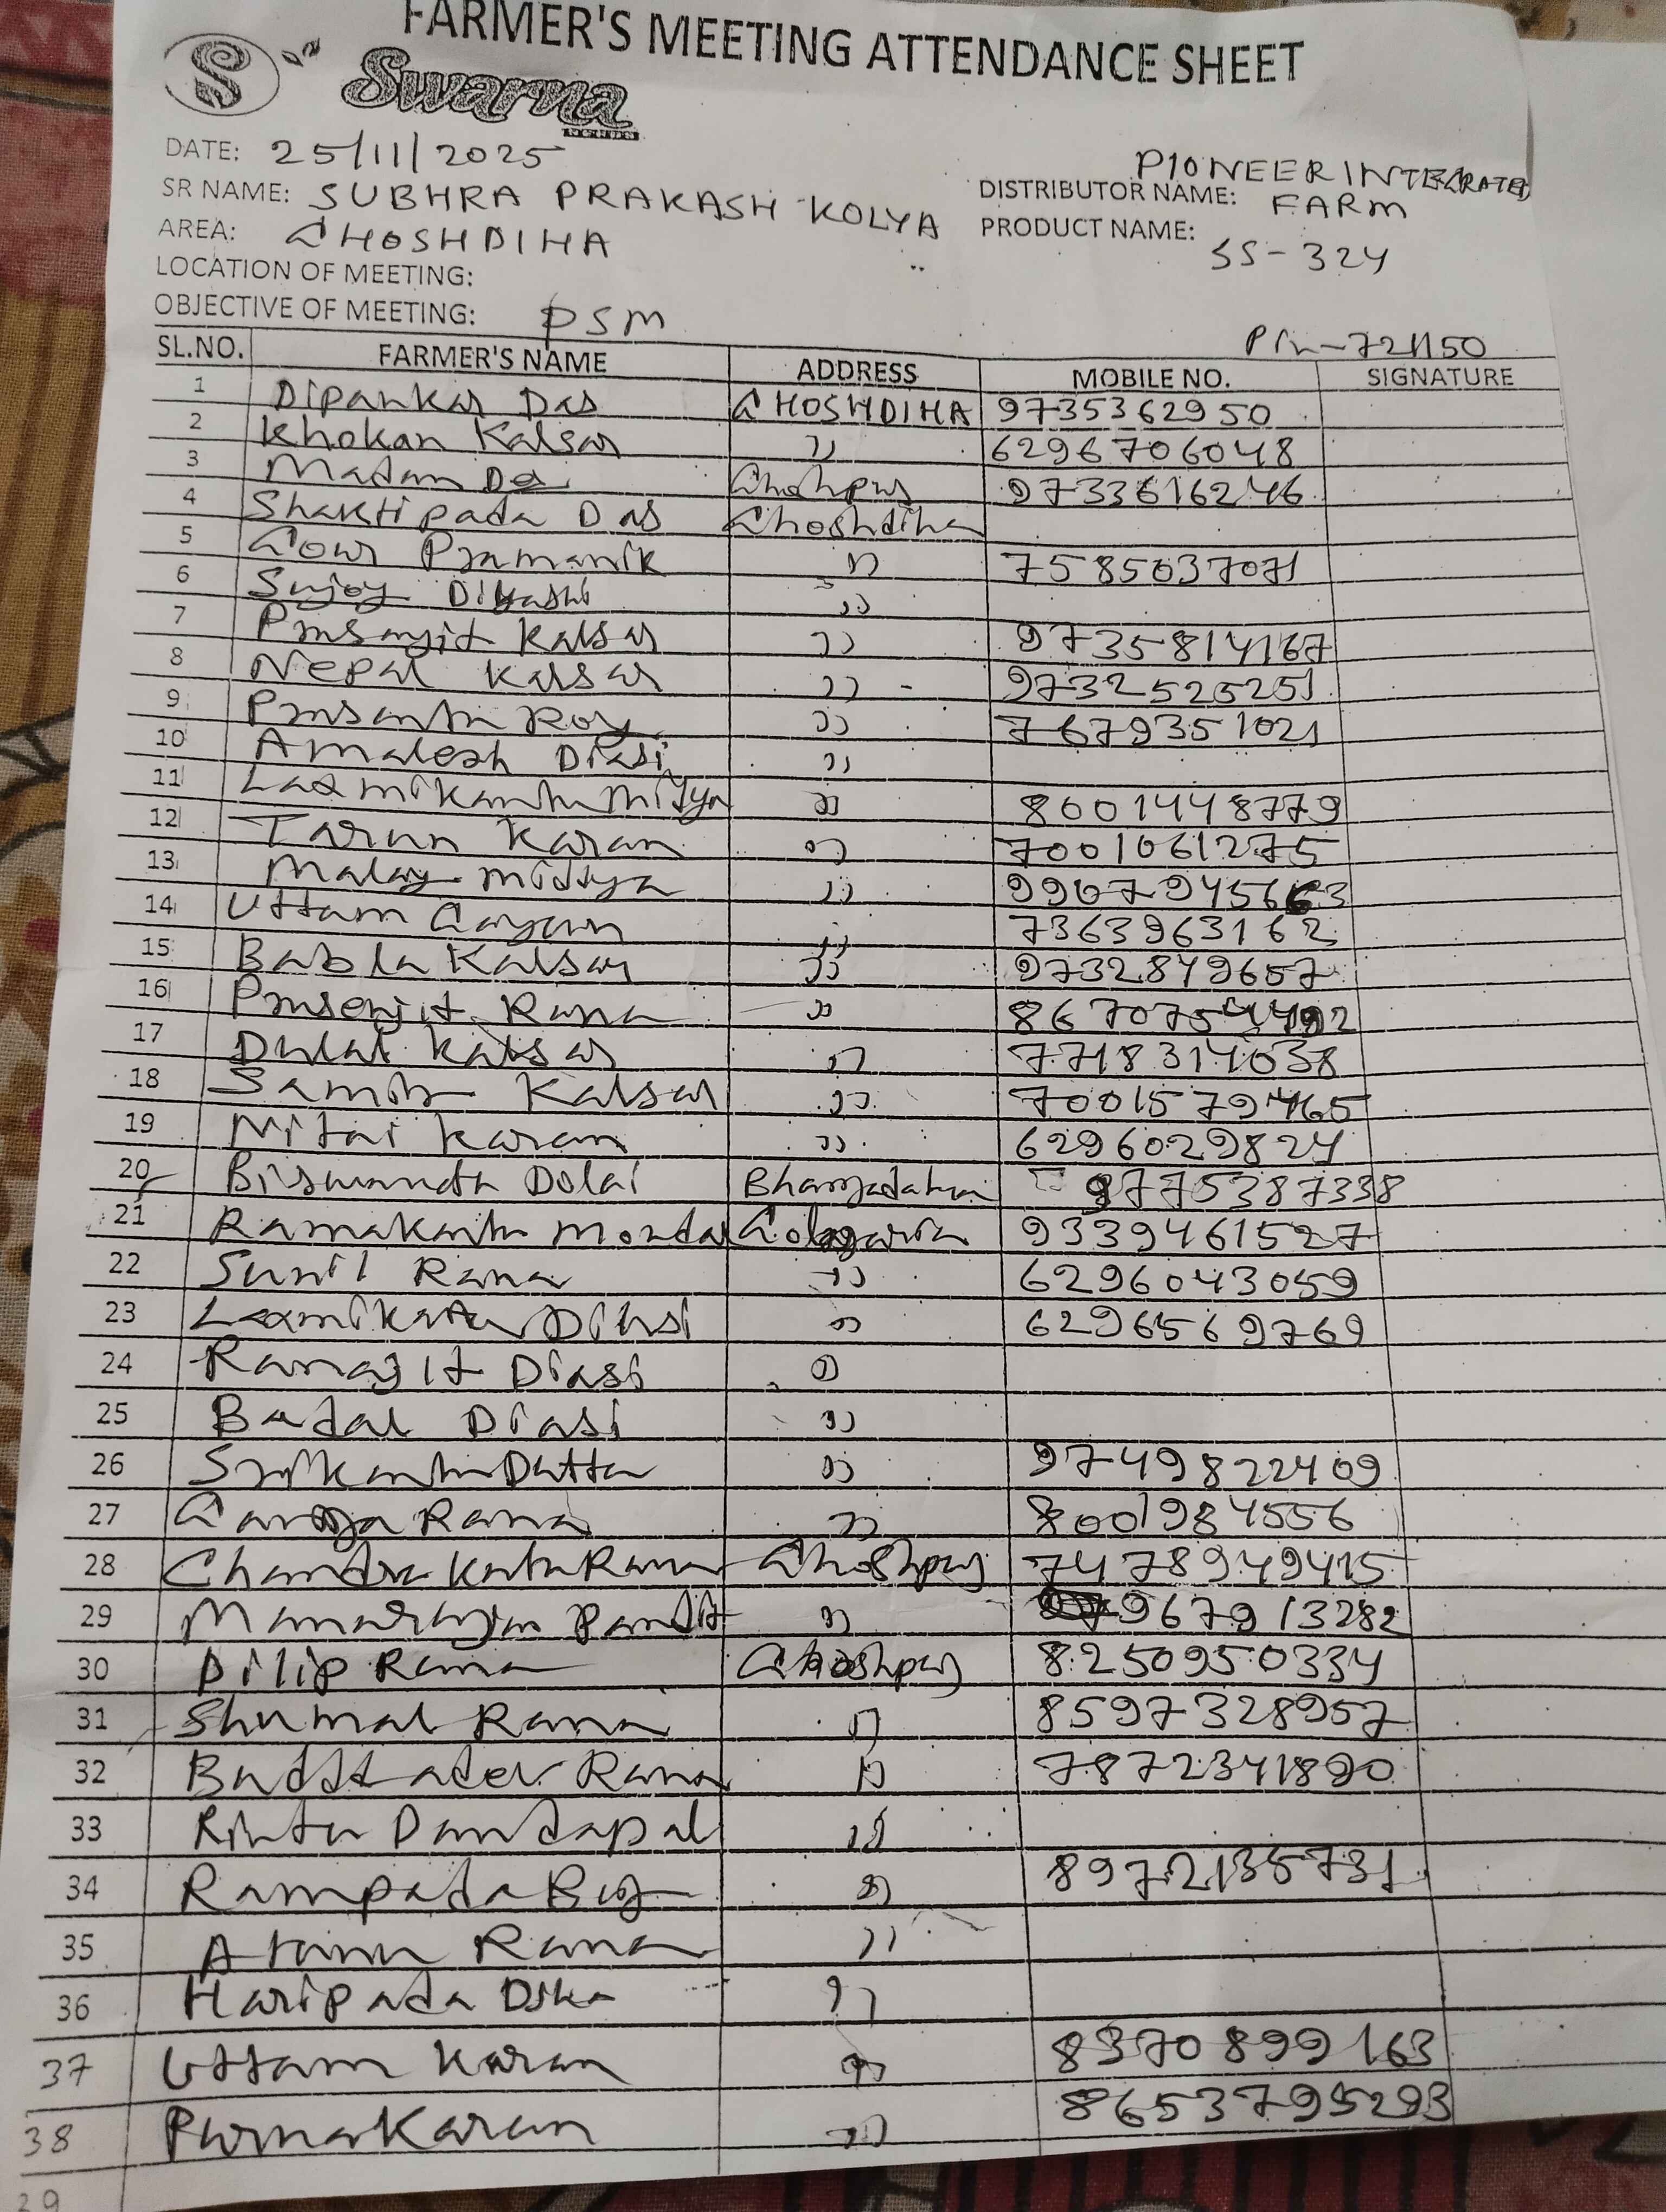 FARMER'S MEETING ATTENDANCE SHEET
S Swarna
DATE: 25/11/2025
SR NAME: SUBHRA PRAKASH KOLYA DISTRIBUTOR NAME: PIONEER INTEGRATED FARM
AREA: GHOSHDIHA PRODUCT NAME: SS-324
LOCATION OF MEETING:
OBJECTIVE OF MEETING: PSM
Pin-721150
SL.NO. FARMER'S NAME ADDRESS MOBILE NO. SIGNATURE
1 Dipankar Das GHOSHDIHA 9735362950
2 Khokan Kalsar " 6296706048
3 Madan De Ghoshpur 9733616246
4 Shaktipada Das Ghoshdiha
5 Gour Pramanik " 7585037071
6 Sujoy "
7 Prasenjit Kalsar " 9735814167
8 Nepal Kalsar " 9732525251
9 Prasanta Roy " 7679351021
10 Amalesh Diasi "
11 Laxmikanta Midya " 8001448779
12 Tarun Karan " 7001061275
13 Malay Middya "
14 Uttam Gayan " 7363963162
15 Babla Kalsar " 9732849657
16 Prasenjit Rana "
17 Dulal Kalsar " 7718314038
18 Samir Kalsar " 7001579465
19 Nitai Karan " 6296029824
20 Biswanath Dolai 9775387338
21 Ramakanta Mondal 9339461527
22 Sunil Rana " 6296043059
23 Laxmikanta " 6296569769
24 Ranajit Diasi "
25 Badal Diasi "
26 Srikanta Dutta " 9749822409
27 Ganga Rana " 8001984556
28 Chandra Kanta Rana Ghoshpur 7478949415
29 Manaranjan Pandit " 967913282
30 Dilip Rana Ghoshpur 8250950334
31 Shyamal Rana " 8597328957
32 Buddhadev Rana " 7872341890
33 Rintu Dandapat "
34 Rampada Bag " 8972135731
35 Atanu Rana "
36 Haripada "
37 Uttam Karan " 8370899163
38 Purna Karan " 8653795293
39